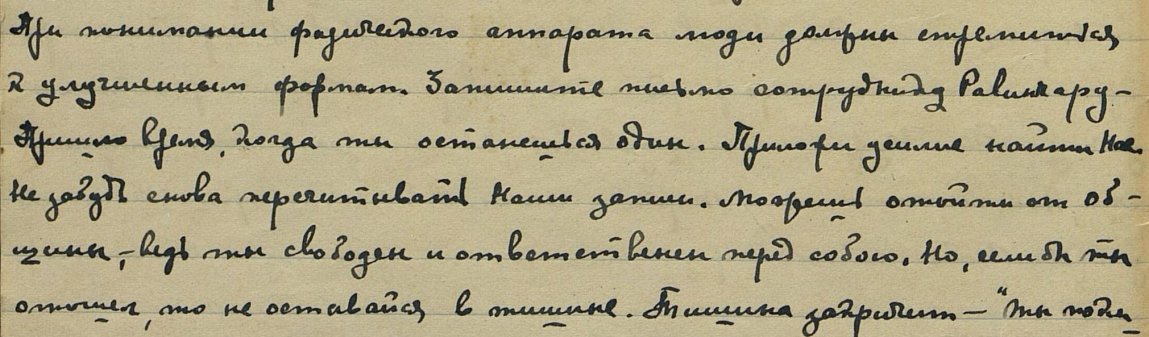 При понимании физического аппарата люди должны стремиться
к улучшенным формам. Запишите письмо сотруднику Равинкару –
Пришло время, когда ты останешься один. Приложи усилие найти Нас.
Не забудь снова перечитывать Наши записи. Можешь отойти от об-
щины, – ведь ты свободен и ответственен перед собою. Но, если бы ты
отошел, то не оставайся в тишине. Тишина закричит – "ты